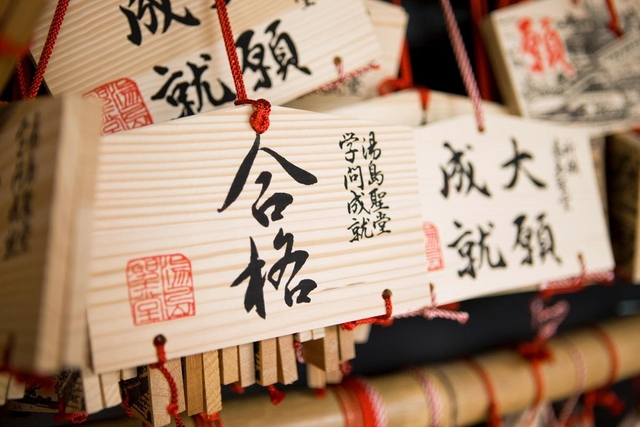 湯島聖堂
学問成就
合格
湯島
聖堂
大願
成就
願
成就
願